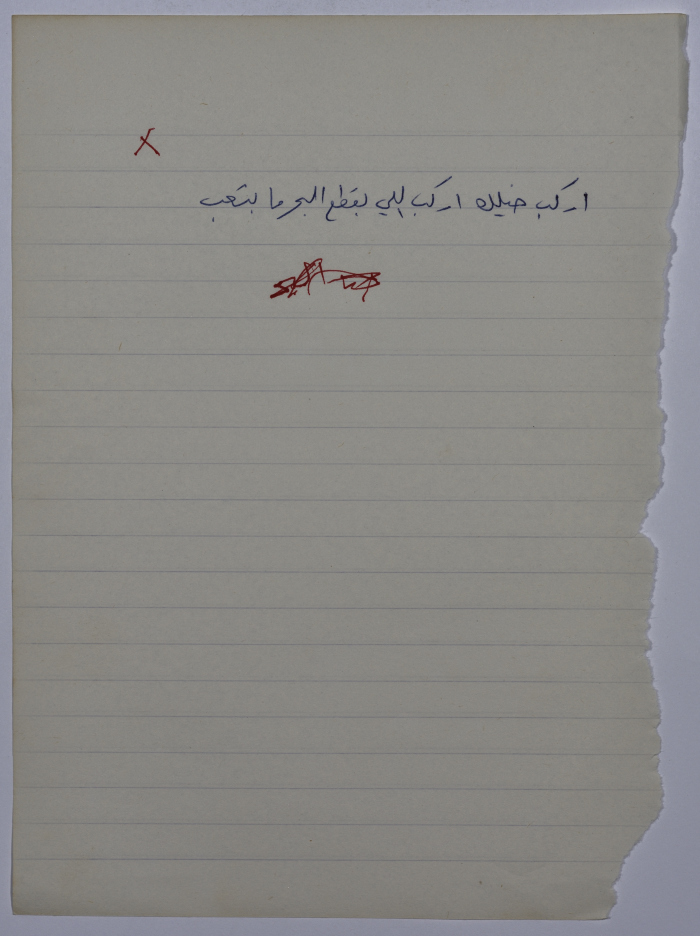 اركب خيلك اركب اللي بقطع البحر ما بتعب